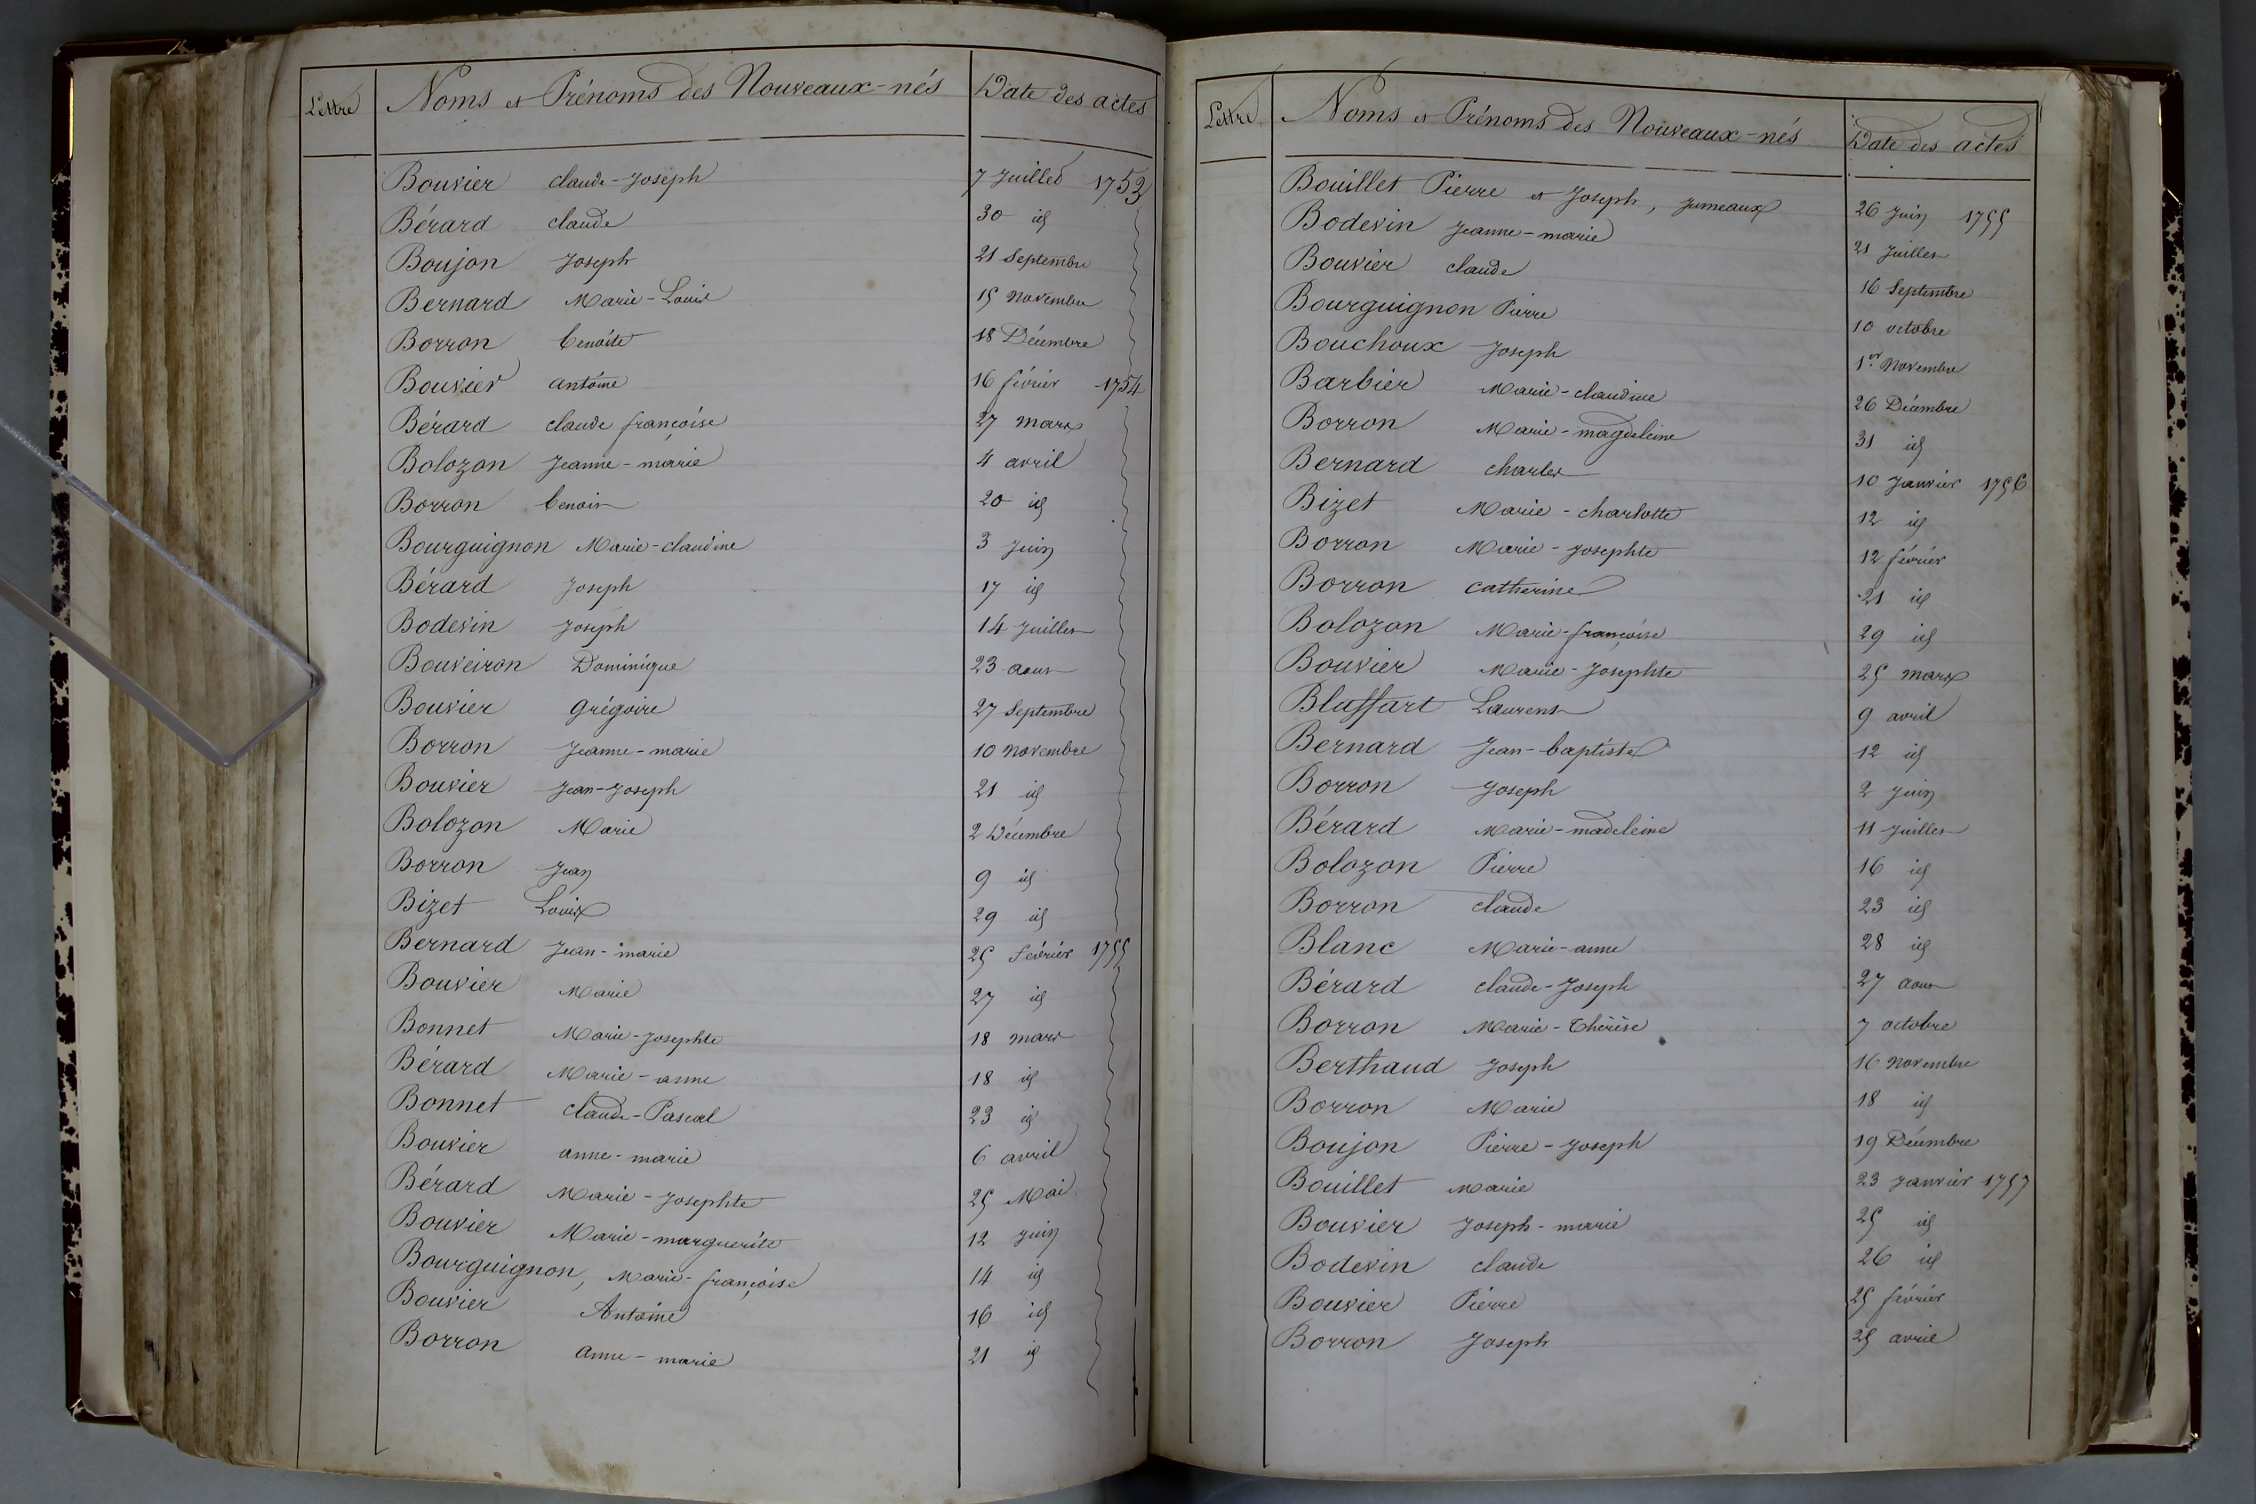 Lettre Noms et Prénoms des Nouveaux-nés Date des actes
Bouvier claude-Joseph 7 Juillet 1753
Bérard claude 30 id
Boujon Joseph 21 Septembre
Bernard Marie-Louise 15 Novembre
Borron benoite 18 Décembre
Bouvier antoine 16 février 1754
Bérard claude françoise 27 mars
Bolozon Jeanne-marie 4 avril
Borron benoit 20 id
Bourguignon Marie-claudine 3 Juin
Bérard Joseph 17 id
Bodevin Joseph 14 Juillet
Bouveiron Dominique 23 aout
Bouvier grégoire 27 Septembre
Borron Jeanne-marie 10 Novembre
Bouvier Jean-Joseph 21 id
Bolozon Marie 2 Décembre
Borron Jean 9 id
Bizet Louis 29 id
Bernard Jean-marie 25 février 1755
Bouvier Marie 27 id
Bonnet Marie-Josephte 18 mars
Bérard Marie-anne 18 id
Bonnet claude-Pascal 23 id
Bouvier anne-marie 6 avril
Bérard Marie-Josephte 25 Mai
Bouvier Marie-marguerite 12 Juin
Bourguignon, Marie-françoise 14 id
Bouvier Antoine 16 id
Borron anne-marie 21 id
Lettre Noms et Prénoms des Nouveaux-nés Date des actes
Bouillet Pierre et Joseph, jumeaux 26 Juin 1755
Bodevin Jeanne-marie 21 Juillet
Bouvier claude 16 Septembre
Bourguignon Pierre 10 octobre
Bouchoux Joseph 1er Novembre
Barbier Marie-claudine 26 Décembre
Borron Marie-magdeleine 31 id
Bernard charles 10 Janvier 1756
Bizet Marie-charlotte 12 id
Borron Marie-Josephte 12 février
Borron catherine 21 id
Bolozon Marie-françoise 29 id
Bouvier Marie-Josephte 25 mars
Bluffart Laurent 9 avril
Bernard Jean-baptiste 12 id
Borron Joseph 2 Juin
Bérard Marie-madeleine 11 Juillet
Bolozon Pierre 16 id
Borron claude 23 id
Blanc Marie-anne 28 id
Bérard claude-Joseph 27 aout
Borron Marie-Thérèse 7 octobre
Berthaud Joseph 16 Novembre
Borron Marie 18 id
Boujon Pierre-Joseph 19 Décembre
Bouillet Marie 23 Janvier 1757
Bouvier Joseph-marie 25 id
Bodevin claude 26 id
Bouvier Pierre 25 février
Borron Joseph 25 avril